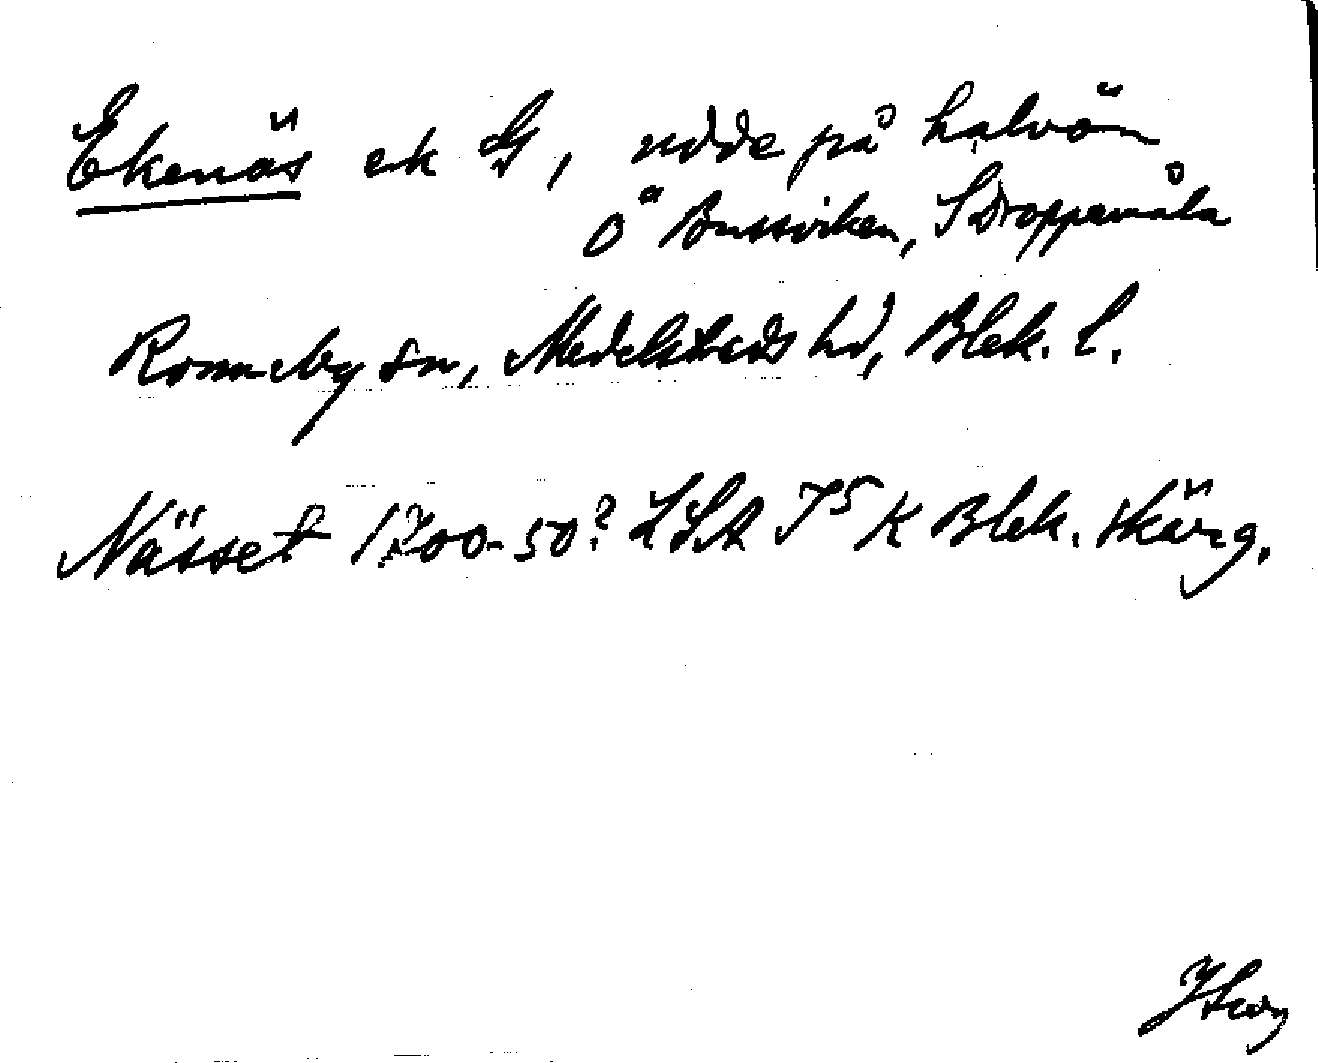 Ekenäs ek G, udde på halvön
Ö Bussviken, S Droppemåla
Ronneby sn, Medelstads hd, Blek. l.
Nässet 1700-50? LSA I⁵ K Blek. skärg.